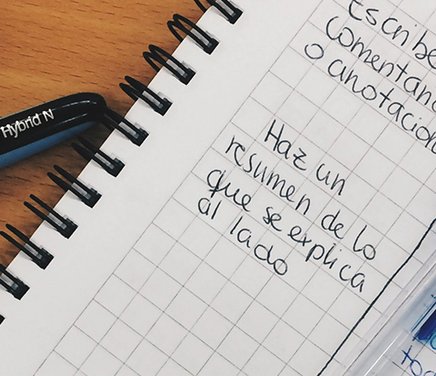 Escribe
comentari
o anotacion
Haz un
resumen de lo
que se explica
al lado
Hybrid N